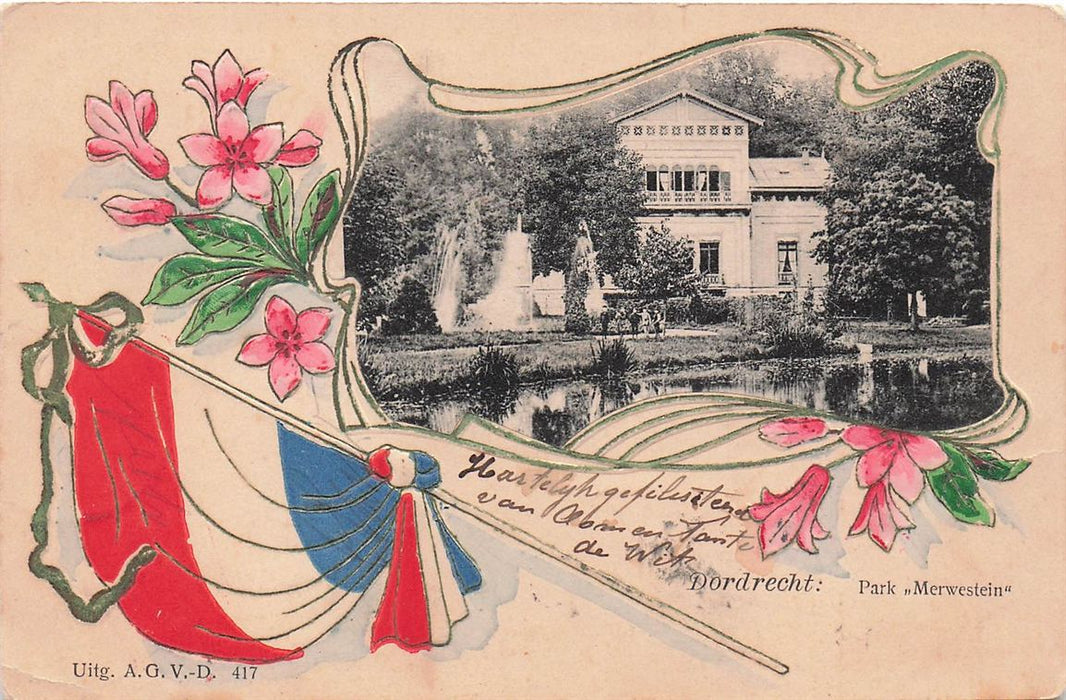 Hartelijk gefiliciteerd
van Oom en Tante
de Wit
Dordrecht:
Park „Merwestein"
Uitg. A. G. V.-D. 417